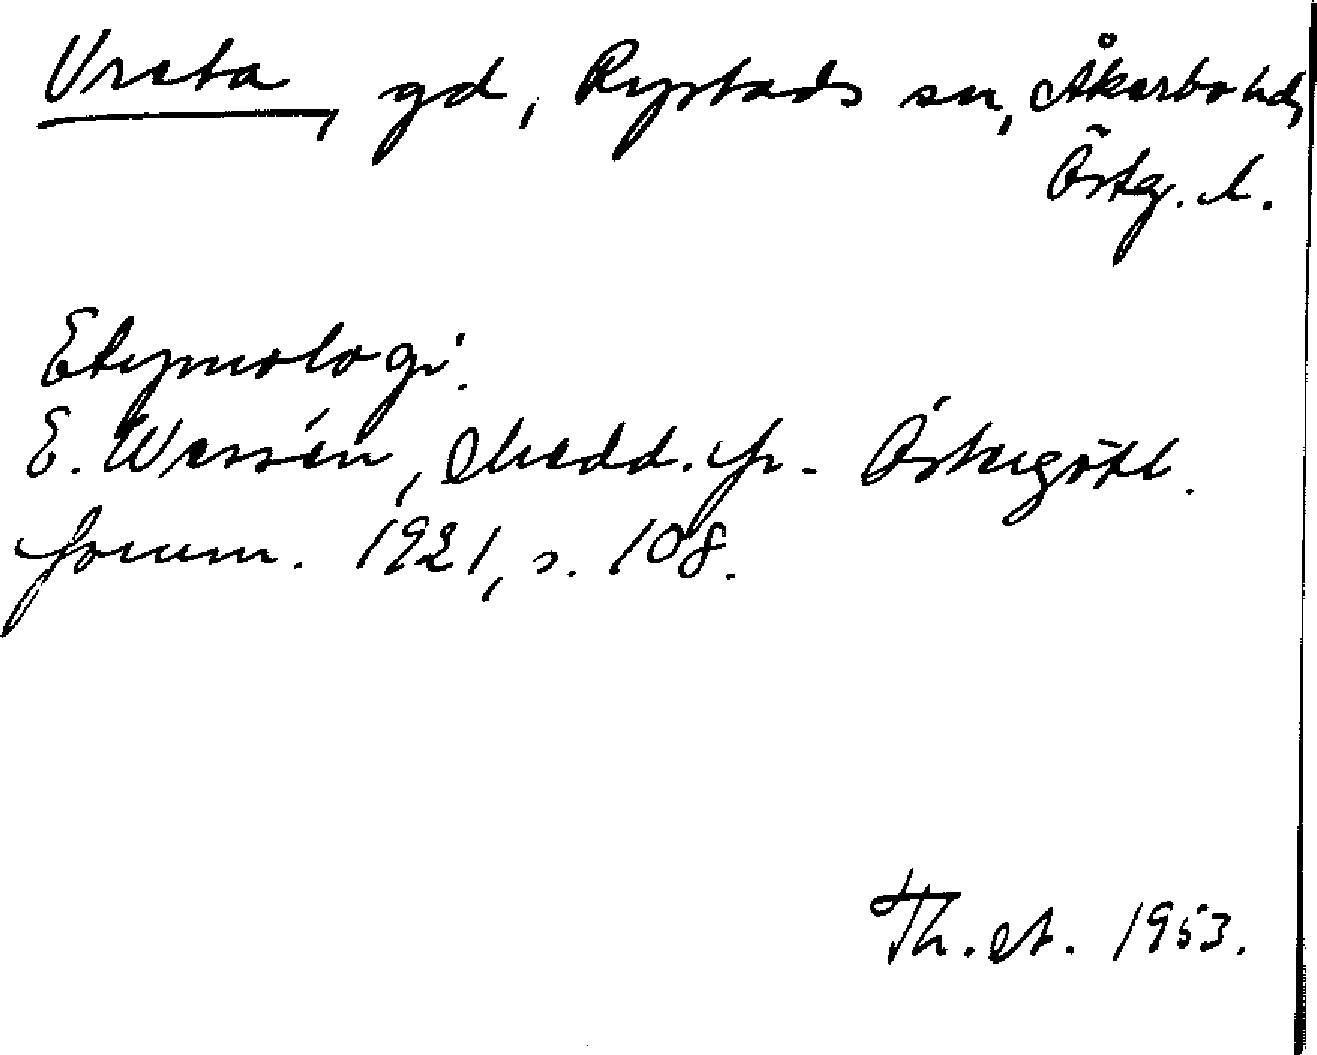 Vreta, gd, Rystads sn, Åkerbo hd,
Östg. l.
Etymologi.
E. Wessén, Medd. fr. Östergötl.
fornm. 1921, s. 108.
Th. A. 1953.